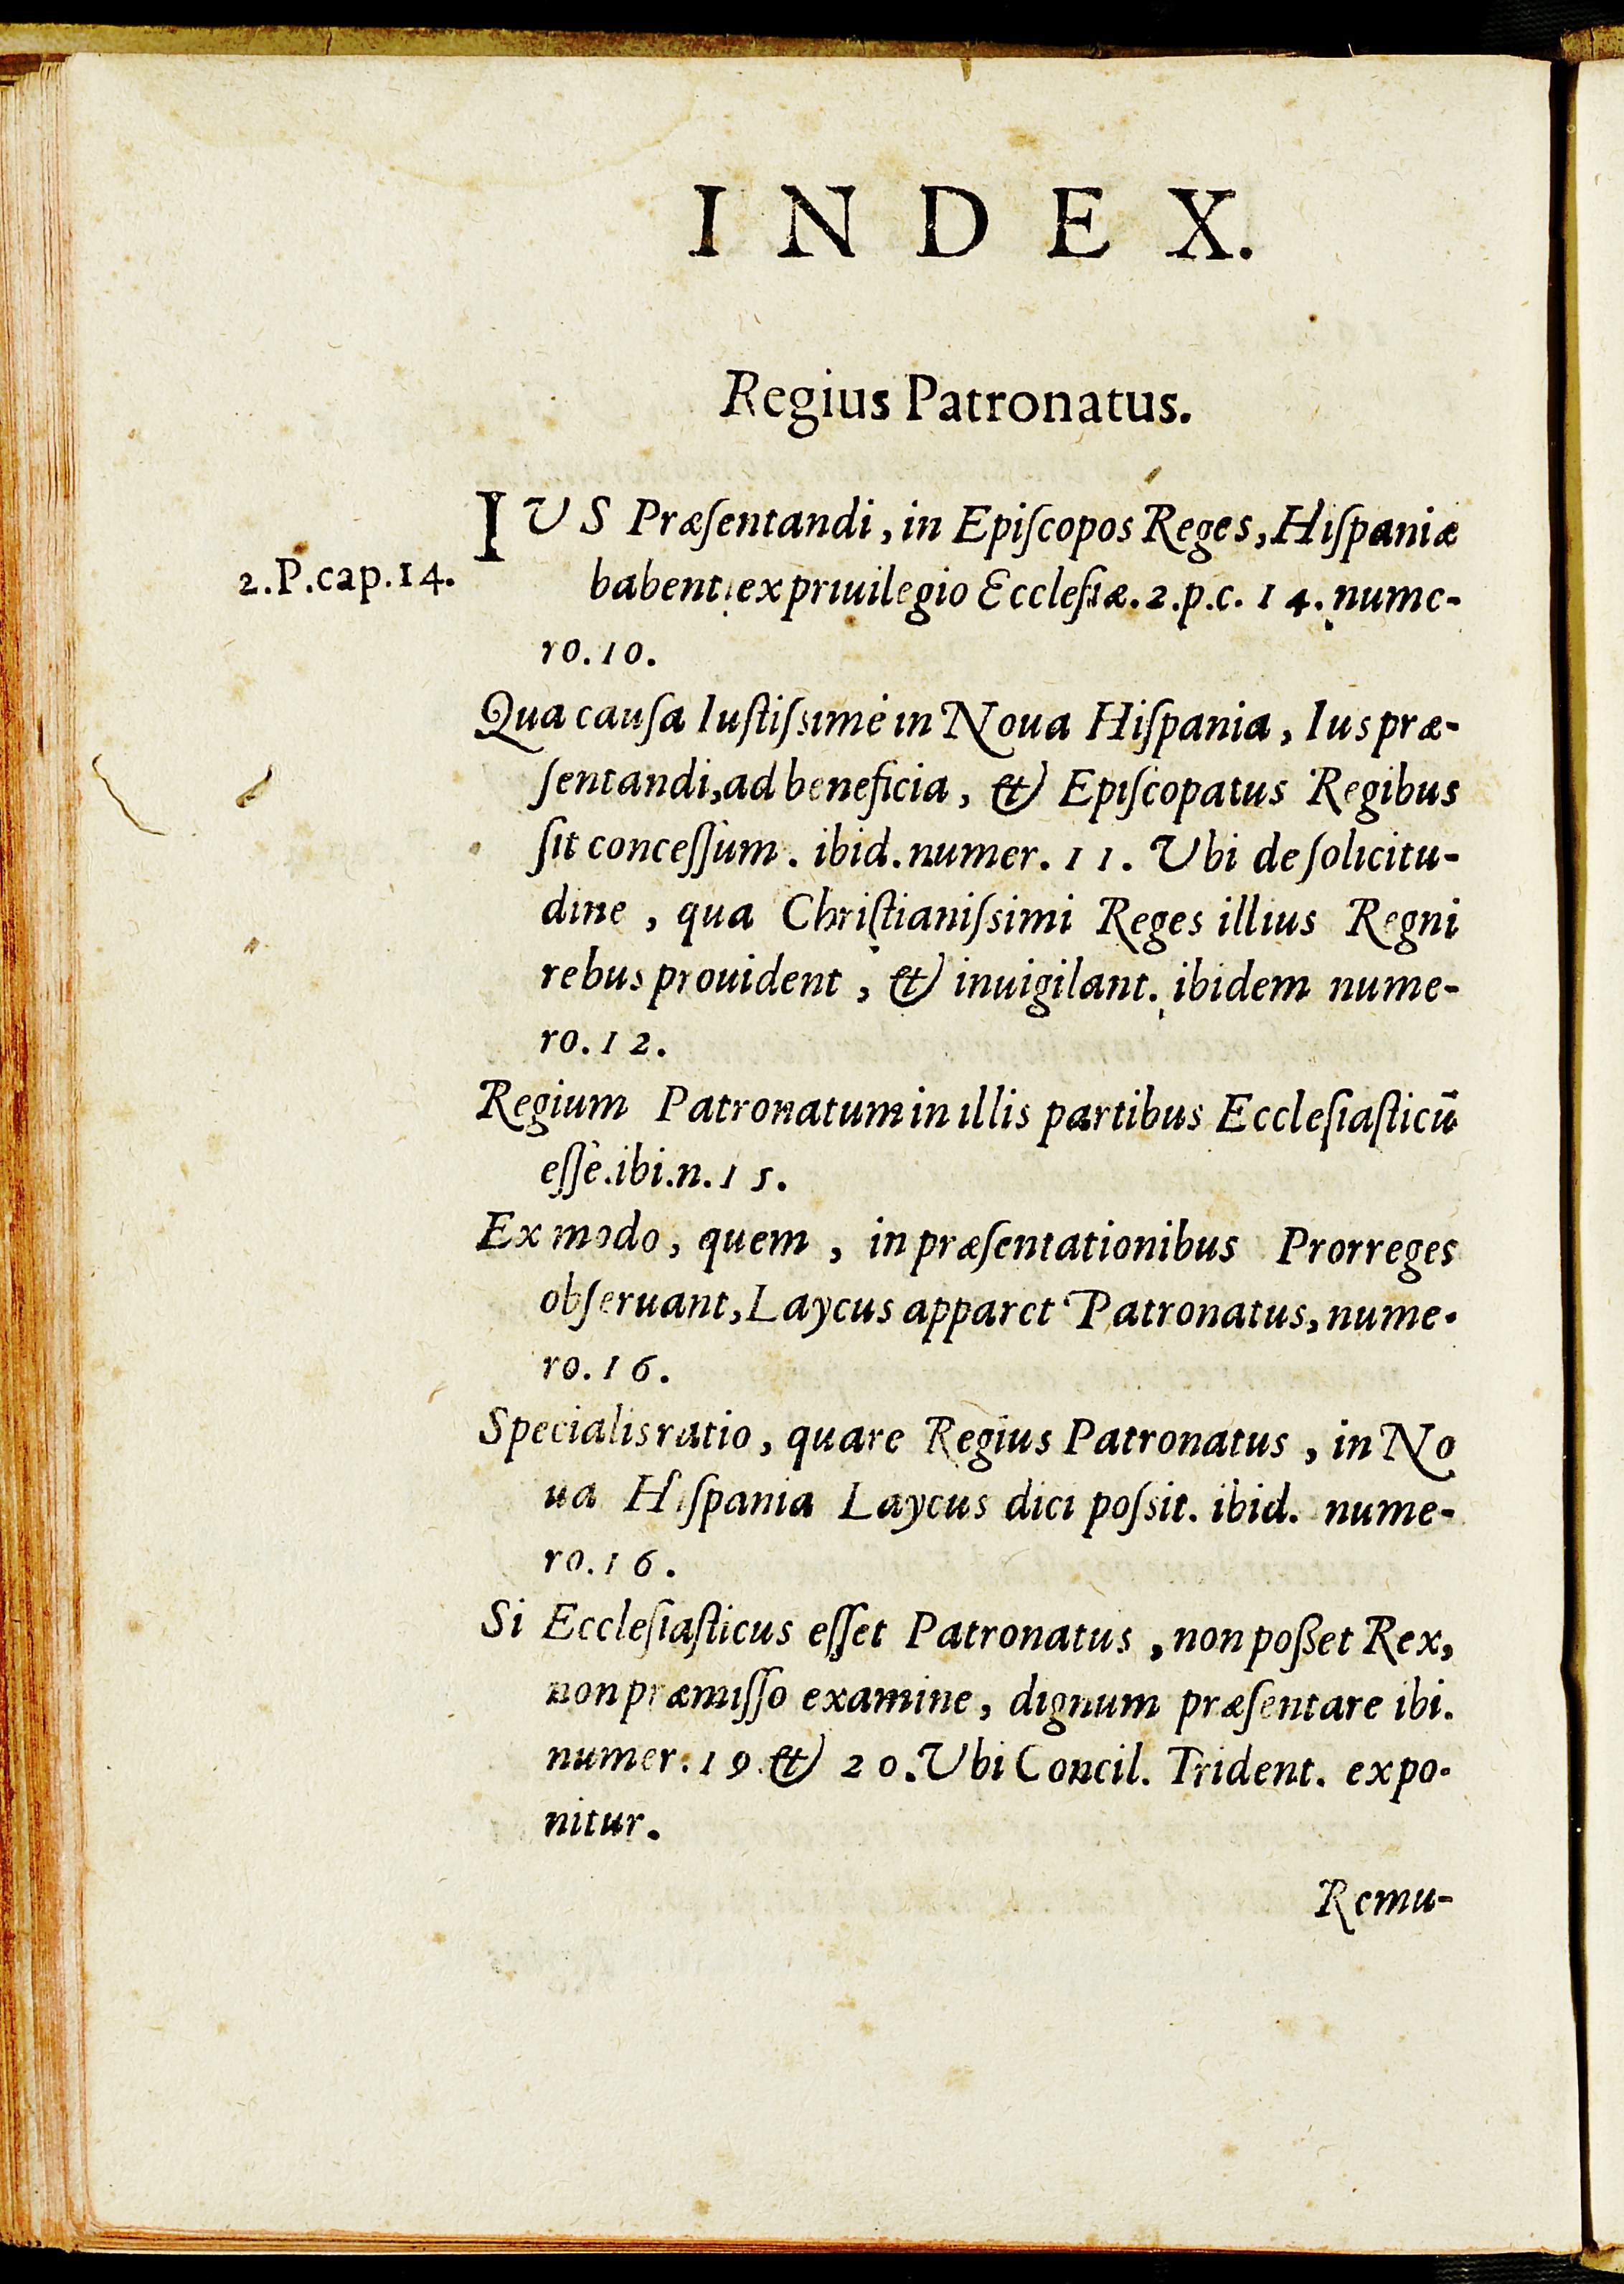 INDEX.
Regius Patronatus.
IUS Præſentandi, in Epiſcopos Reges, Hiſpaniæ
2.P.cap.14.
habent, ex priuilegio Eccleſiæ. 2.p.c. 14. nume-
ro. 10.
Qua cauſa Iuſtiſsimè in Noua Hiſpania, Ius præ-
ſentandi, ad beneficia, & Epiſcopatus Regibus
ſit conceſſum. ibid. numer. 11. Ubi de ſolicitu-
dine, qua Chriſtianiſsimi Reges illius Regni
rebus prouident, & inuigilant. ibidem nume-
ro. 12.
Regium Patronatum in illis partibus Eccleſiaſticũ
eſſe. ibi. n. 15.
Ex modo, quem, in præſentationibus Prorreges
obſeruant, Laycus apparet Patronatus, nume-
ro. 16.
Specialis ratio, quare Regius Patronatus, in No
ua Hiſpania Laycus dici poſsit. ibid. nume-
ro. 16.
Si Eccleſiaſticus eſſet Patronatus, non poßet Rex,
non præmiſſo examine, dignum præſentare ibi.
numer. 19. & 20. Ubi Concil. Trident. expo-
nitur.
Remu-